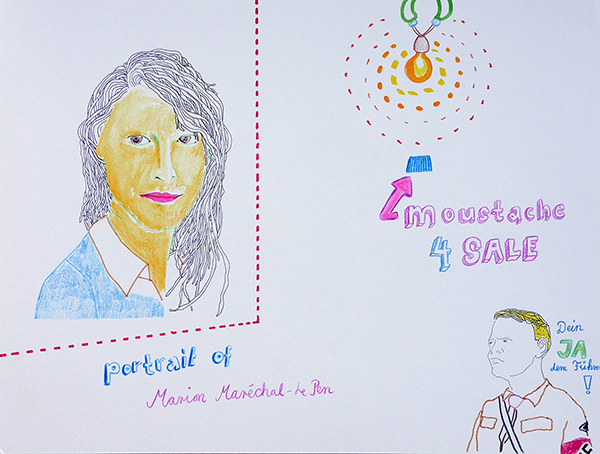 portrait of
Marion Maréchal-Le Pen
moustache
4 SALE
Dein
JA
dem Führer
!